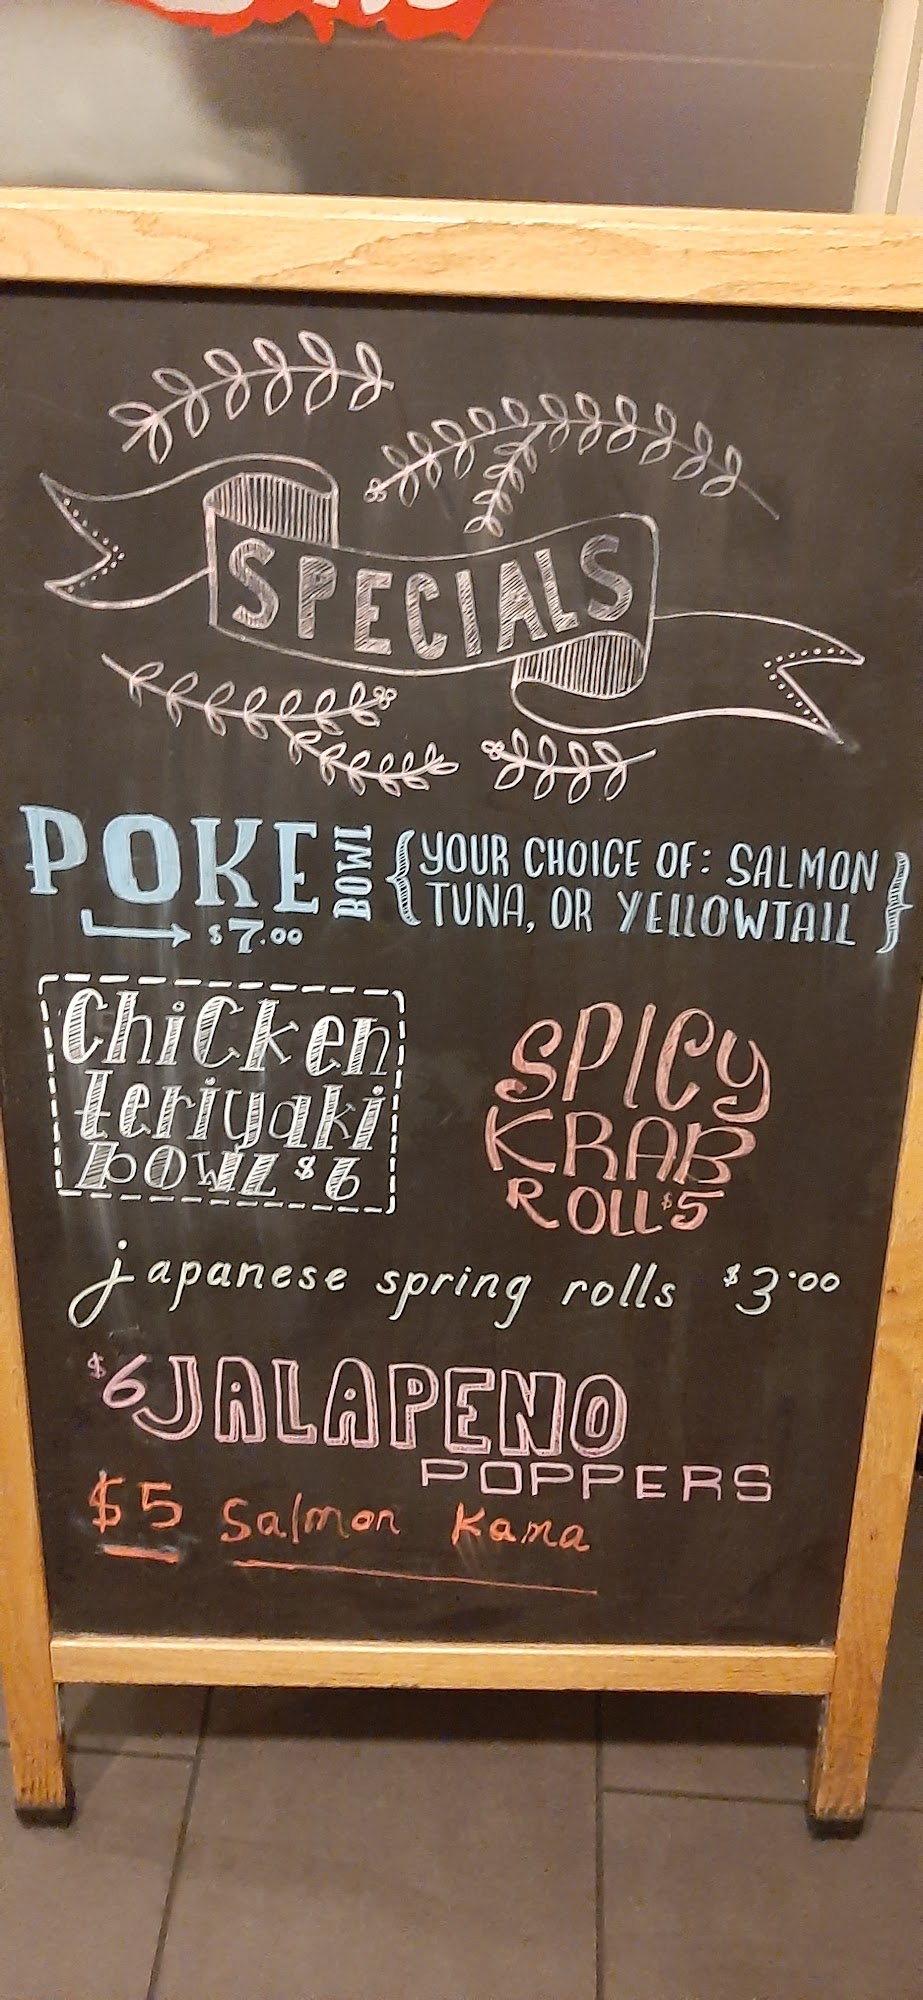 SPECIALS
POKE BOWL {YOUR CHOICE OF: SALMON
TUNA, OR YELLOWTAIL}
$7.00
Chicken
teriyaki
bowl $6
SPICY
KRAB
ROLL $5
japanese spring rolls $3.00
$6 JALAPENO
POPPERS
$5 Salmon Kama